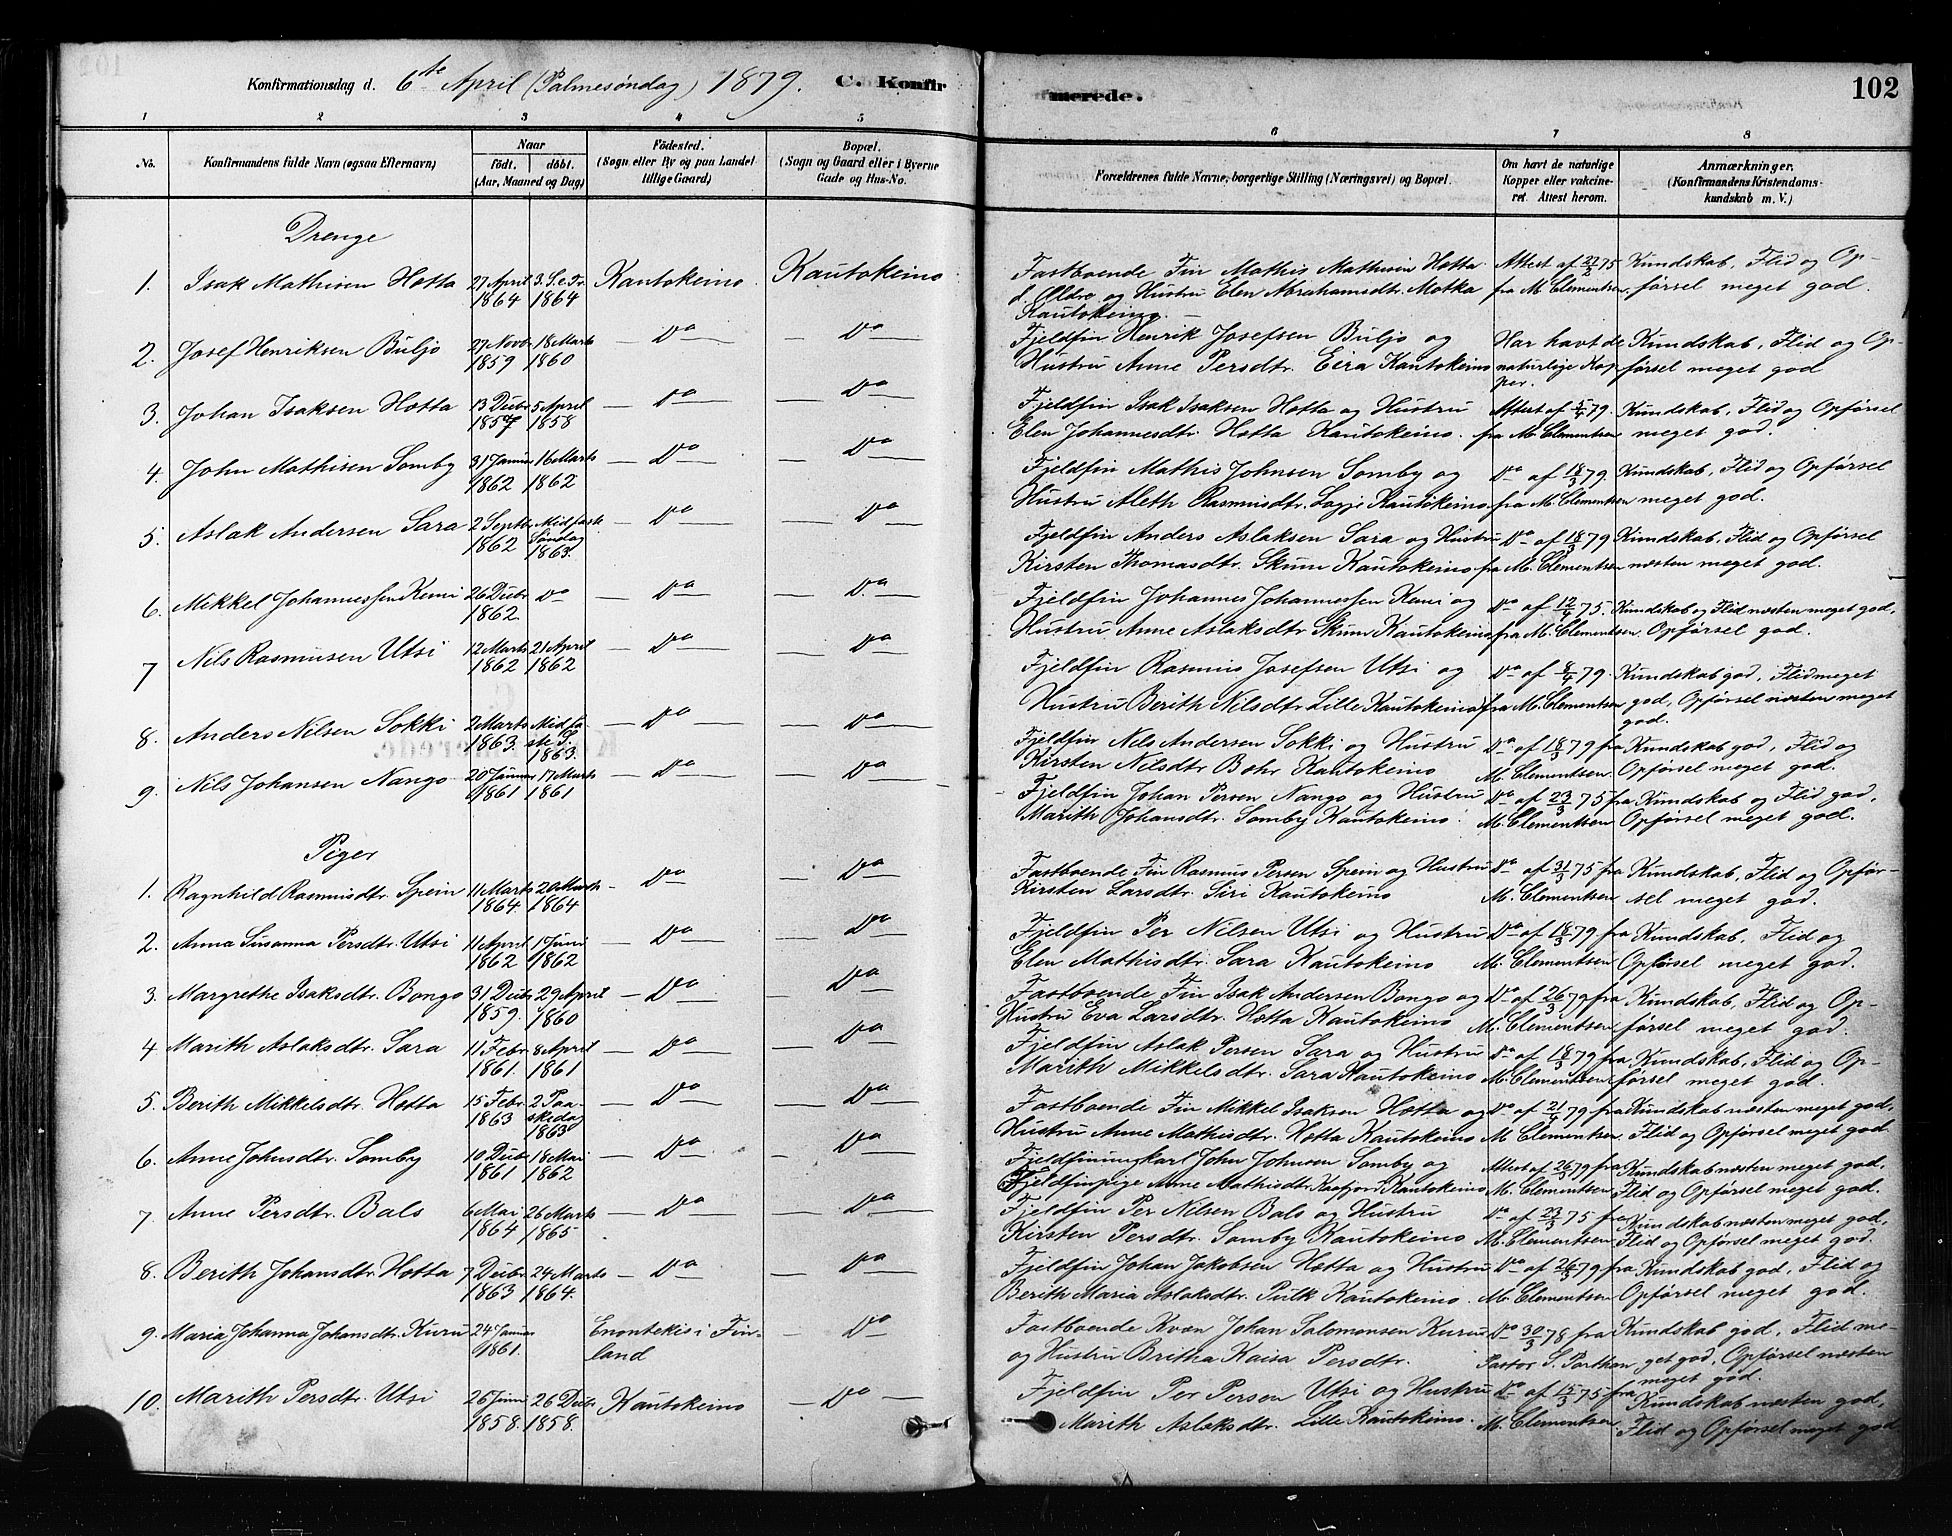 Konfirmationsdag d. 6te April (Palmesøndag) 1879. C. Konfir merede. 102
1 2 3 4 5 6 7 8
No. Konfirmandens fulde Navn (ogsaa Efternavn). Naar født. døbt. (Aar, Maaned og Dag) Fødested. (Sogn eller By og paa Landet tillige Gaard) Bopæl. (Sogn og Gaard eller i Byerne Gade og Hus-No. Forældrenes fulde Navne, borgerlige Stilling (Næringsvei) og Bopæl. Om havt de naturlige Kopper eller vakcineret. Attest herom. Anmærkninger. (Konfirmandens Kristendomskundskab m. V.)
Drenge
1. Isak Mathisen Hætta 27 April 1864 3. S. e. Tr. 1864 Kautokeino Kautokeino Fastboende Fin Mathis Mathisen Hætta d. Ældre og Hustru Elen Abrahamsdtr. Motka Kautokeino. Attest af 22/2 75 fra M. Clementsen. Kundskab, Flid og Opførsel meget god.
2. Josef Henriksen Buljo 27 Novb. 1859 18 Marts 1860 Do Do Fjeldfin Henrik Josefsen Buljo og Hustru Anne Persdtr. Eira Kautokeino Har havt de naturlige Kopper. Kundskab, Flid og Opførsel meget god
3. Johan Isaksen Hætta 13 Decbr 1857 5 April 1858 Do Do Fjeldfin Isak Isaksen Hætta og Hustru Elen Johannesdtr. Hætta Kautokeino. Attest af 5/4 79. fra M. Clementsen Kundskab, Flid og Opførsel meget god.
4. John Mathisen Somby 31 Januar 1862 16 Marts 1862 Do Do Fjeldfin Mathis Johnsen Somby og Hustru Aleth Rasmusdtr. Logje Kautokeino Do af 18/3 79. fra M. Clementsen Kundskab, Flid og Opførsel meget god.
5. Aslak Andersen Sara 2 Septb. 1862 Midfaste Søndag 1863. Do Do Fjeldfin Anders Aslaksen Sara og Hustru Kirsten Thomasdtr. Skum Kautokeino Do af 18/3 79 fra M. Clementsen Kundskab, Flid og Opførsel næsten meget god.
6. Mikkel Johannessen Kemi 26 Decbr 1862. Do Do Do Fjeldfin Johannes Johannessen Kemi og Hustru Anne Aslaksdtr Skum Kautokeino Do af 12/4 75. fra M. Clementsen. Kundskab og Flid næsten meget god, Opførsel god.
7 Nils Rasmusen Utsi 12 Marts 1862 21 April 1862 Do Do Fjeldfin Rasmus Josefsen Utsi og Hustru Berith Nilsdtr Lille Kautokeino Do af 8/4 79. fra M. Clementsen Kundskab god, Flid meget god, Opførsel næsten meget god.
8. Anders Nilsen Sokki 2 Marts 1863. Midfaste S. 1863. Do Do Fjeldfin Nils Andersen Sokki og Hustru Kirsten Nilsdtr Bohr Kautokeino Do af 18/3 79 fra M. Clementsen. Kundskab god, Flid og Opførsel meget god.
9. Nils Johansen Nango 20 Januar 1861 17 Marts 1861 Do Do Fjeldfin Johan Persen Nango og Hustru Marith Johansdtr. Somby Kautokeino. Do af 23/3 75 fra M. Clementsen Kundskab og Flid god, Opførsel meget god.
Piger
1. Ragnhild Rasmusdtr. Spein 11 Marts 1864. 20 Marts 1864 Do Do Fastboende Fin Rasmus Persen Spein og Hustru Kirsten Larsdtr. Siri Kautokeino Do af 31/3 75 fra M. Clementsen Kundskab, Flid og Opførsel meget god.
2. Anna Susanna Persdtr. Utsi 11 April 1862 1 Juni 1862 Do Do Fjeldfin Per Nilsen Utsi og Hustru Elen Mathisdtr. Sara Kautokeino Do af 18/3 79 fra M. Clementsen Kundskab, Flid og Opførsel meget god.
3. Margrethe Isaksdtr. Bongo 31 Decbr 1859. 29 April 1860 Do Do Fastboende Fin Isak Andersen Bongo og Hustru Eva Larsdtr. Hætta Kautokeino Do af 26/3 79 fra M. Clementsen Kundskab, Flid og Opførsel meget god.
4 Marith Aslaksdtr. Sara 11 Febr. 1861. 8 April 1861 Do Do Fjeldfin Aslak Persen Sara og Hustru Marith Mikkelsdtr. Sara Kautokeino Do af 18/3 79 fra M. Clementsen Kundskab, Flid og Opførsel meget god.
5. Berith Mikkelsdtr. Hætta 15 Febr. 1863 2 Paaskedag 1863 Do Do Fastboende Fin Mikkel Isaksen Hætta og Hustru Anne Mathisdtr. Hætta Kautokeino Do af 21/4 79 fra M. Clementsen. Kundskab næsten meget god, Flid og Opførsel meget god.
6. Anne Johnsdtr. Somby 10 Decbr 1861 18 Mai 1862 Do Do Fjeldfinungkarl John Johnsen Somby og Fjeldfinpige Anne Mathisdtr Kaafjord Kautokeino Attest af 26/3 79 fra M. Clementsen. Kundskab næsten meget god, Flid og Opførsel meget god.
7. Anne Persdtr. Bals 6 Mai 1864 26 Marts 1865 Do Do Fjeldfin Per Nilsen Bals og Hustru Kirsten Persdtr. Somby Kautokeino Do af 23/3 75 fra M. Clementsen Kundskab næsten meget god, Flid og Opførsel meget god.
8. Berith Johansdtr. Hætta 7 Decbr 1863 24 Marts 1864. Do Do Fjeldfin Johan Jakobsen Hætta og Hustru Berith Maria Aslaksdtr. Kautokeino. Do af 26/3 79 fra M. Clementsen Kundskab god, Flid og Opførsel meget god.
9. Maria Johanna Johansdtr. Kuru 24 Januar 1861. Enontekis i Finland Do Fastboende Kvæn Johan Salomonsen Kuru og Hustru Britha Kaisa Persdtr. Do 30/3 78 fra Pastor S. Kundskab god, Flid meget god, Opførsel næsten meget god.
10. Marith Persdtr. Utsi 26 Juni 1858. 26 Decbr 1858. Kautokeino Do Fjeldfin Per Persen Utsi og Hustru Marith Aslaksdtr. Lille Kautokeino. Do af 15/3 75 fra M. Clementsen Kundskab næsten god, Flid og Opførsel meget god